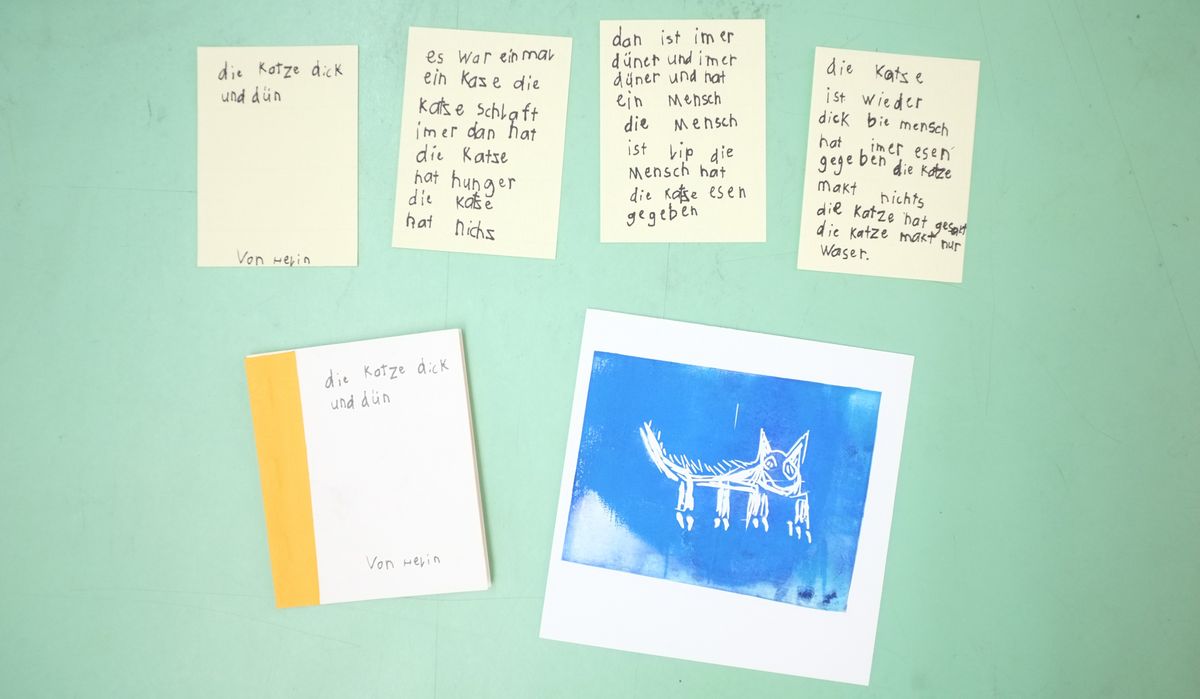 die Katze dick
und dün
Von Helin
es war einmal
ein Kaze die
Katse schlaft
imer dan hat
die Katze
hat hunger
die Katse
hat nichs
dan ist imer
düner und imer
düner und hat
ein Mensch
die Mensch
ist lip die
Mensch hat
die Katse esen
gegeben
die Katse
ist wieder
dick bie mensch
hat imer esen
gegeben die Katze
makt nichts
die Katze hat gesakt
die Katze makt nur
Waser.
die Katze dick
und dün
Von Helin